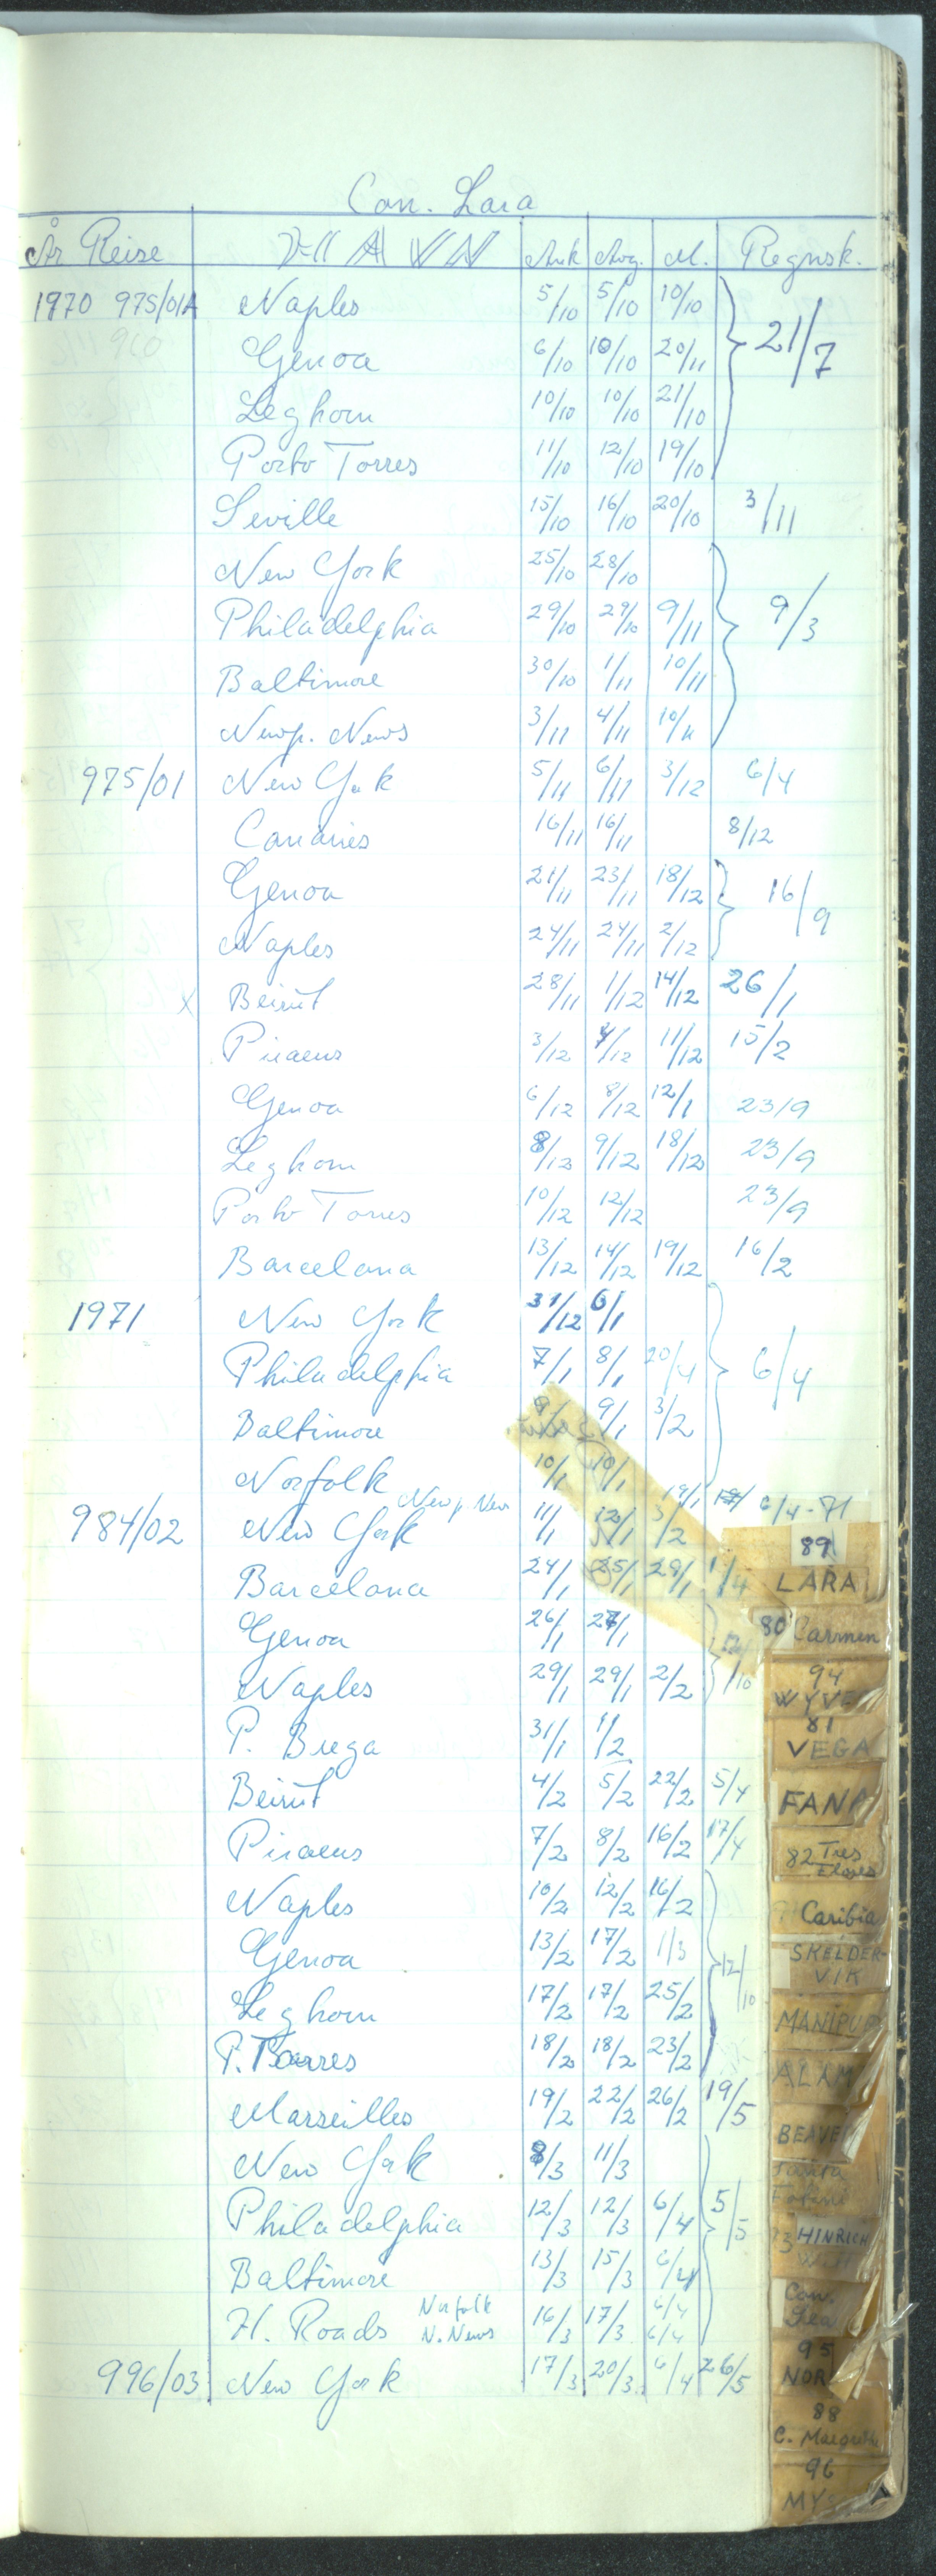 Con. Lara
År Reise HAVN Ank Avg. M. Regnsk.
1970 975/01A Naples 5/10 5/10 10/10
Genoa 6/10 10/10 20/11 21/7
Leghorn 10/10 10/10 21/10
Porto Torres 11/10 12/10 19/10
Seville 15/10 16/10 20/10 3/11
New York 25/10 28/10
Philadelphia 29/10 29/10 9/11 9/3
Baltimore 30/10 1/11 10/11
Newp. News 3/11 4/11 10/11
975/01 New York 5/11 6/11 3/12 6/4
Canaries 16/11 16/11 8/12
Genoa 21/11 23/11 18/12 16/9
Naples 24/11 24/11 2/12
x Beirut 28/11 1/12 14/12 26/1
Piraeus 3/12 4/12 11/12 15/2
Genoa 6/12 8/12 12/1 23/9
Leghorn 8/12 9/12 18/12 23/9
Porto Torres 10/12 12/12 23/9
Barcelona 13/12 14/12 19/12 16/2
1971 New York 31/12 6/1
Philadelphia 7/1 8/1 20/4 6/4
Baltimore 9/1 9/1 3/2
Norfolk 10/1 10/1
Newp. News 19/1 6/4-71
984/02 New York 11/1 12/1 3/2
Barcelona 24/1 25/1 29/1 1/4
Genoa 26/1 28/1
Naples 29/1 29/1 2/2
P. Brega 31/1 1/2
Beirut 4/2 5/2 22/2 5/4
Piraeus 7/2 8/2 16/2 17/4
Naples 10/2 12/2 16/2
Genoa 13/2 17/2 1/3 12/10
Leghorn 17/2 17/2 25/2
P. Torres 18/2 18/2 23/2
Marseilles 19/2 22/2 26/2 19/5
New York 8/3 11/3
Philadelphia 12/3 12/3 6/4 5/5
Baltimore 13/3 15/3 6/4
H. Roads Norfolk 16/3 17/3 6/4
N. News 6/4
996/03 New York 17/3 20/3 6/4 26/5
89
LARA
80 Carmen
94
WYVE
81
VEGA
FANA
82 Tres
Flores
Caribia
SKELDER-
VIK
MANIPUR
ALAM
BEAVE
HINRICH
Con.
Lea
95
NOR
88
C. Margrethe
96
MYS